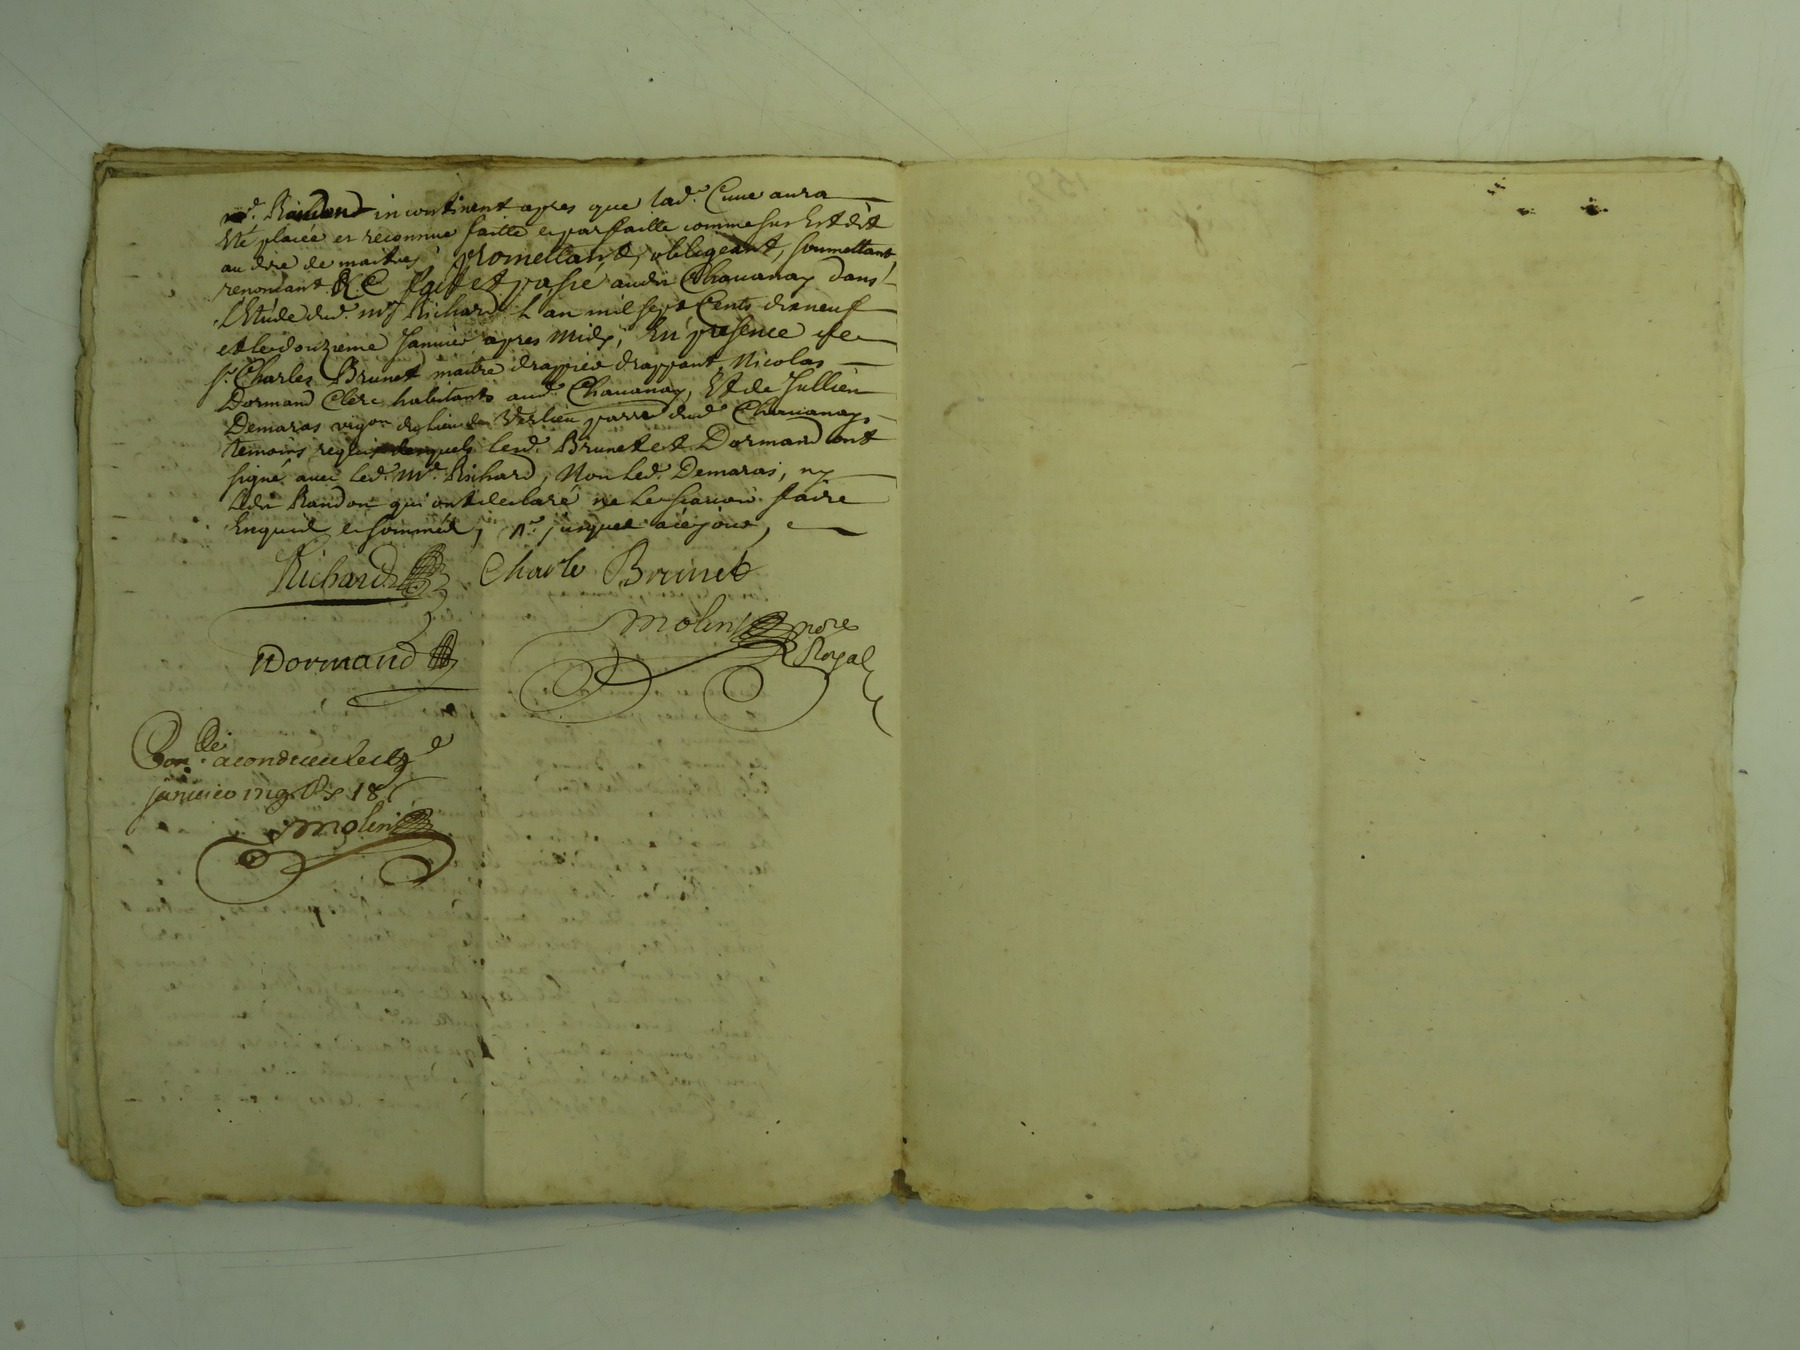 incontinent apres que lad.e Cuue aura
Eté placée et reconnue faitte et parfaitte comme sus Est dit
au dire de maitres promettant, obligeant, soumettant,
renoncant &.C fait et passé audit Chauanay dans
L'Etude dud. m.e Richard L'an mil sept Cents dixneuf
et le douzieme Januier apres midy, En presence de
s.r Charles Brunet maitre drappier drappant, Nicolas
Dormand Clerc habitants aud. Chauanay, Et de Jullien
Demaras vigon du lieu de Verlieu parre dud. Chauanay,
temoins requis lesd. Brunet et Dormand ont
signé auec led. m.e Richard, Non led. Demaras, ny
ledit Randon qui ont declaré ne le scauoir faire
Enquis et sommés, jusques à ce jour,
Richard Charle Brunet
Molin no.re
Royal
Dormand
Con.lé a condrieu le
januier 1719 18
Molin
159